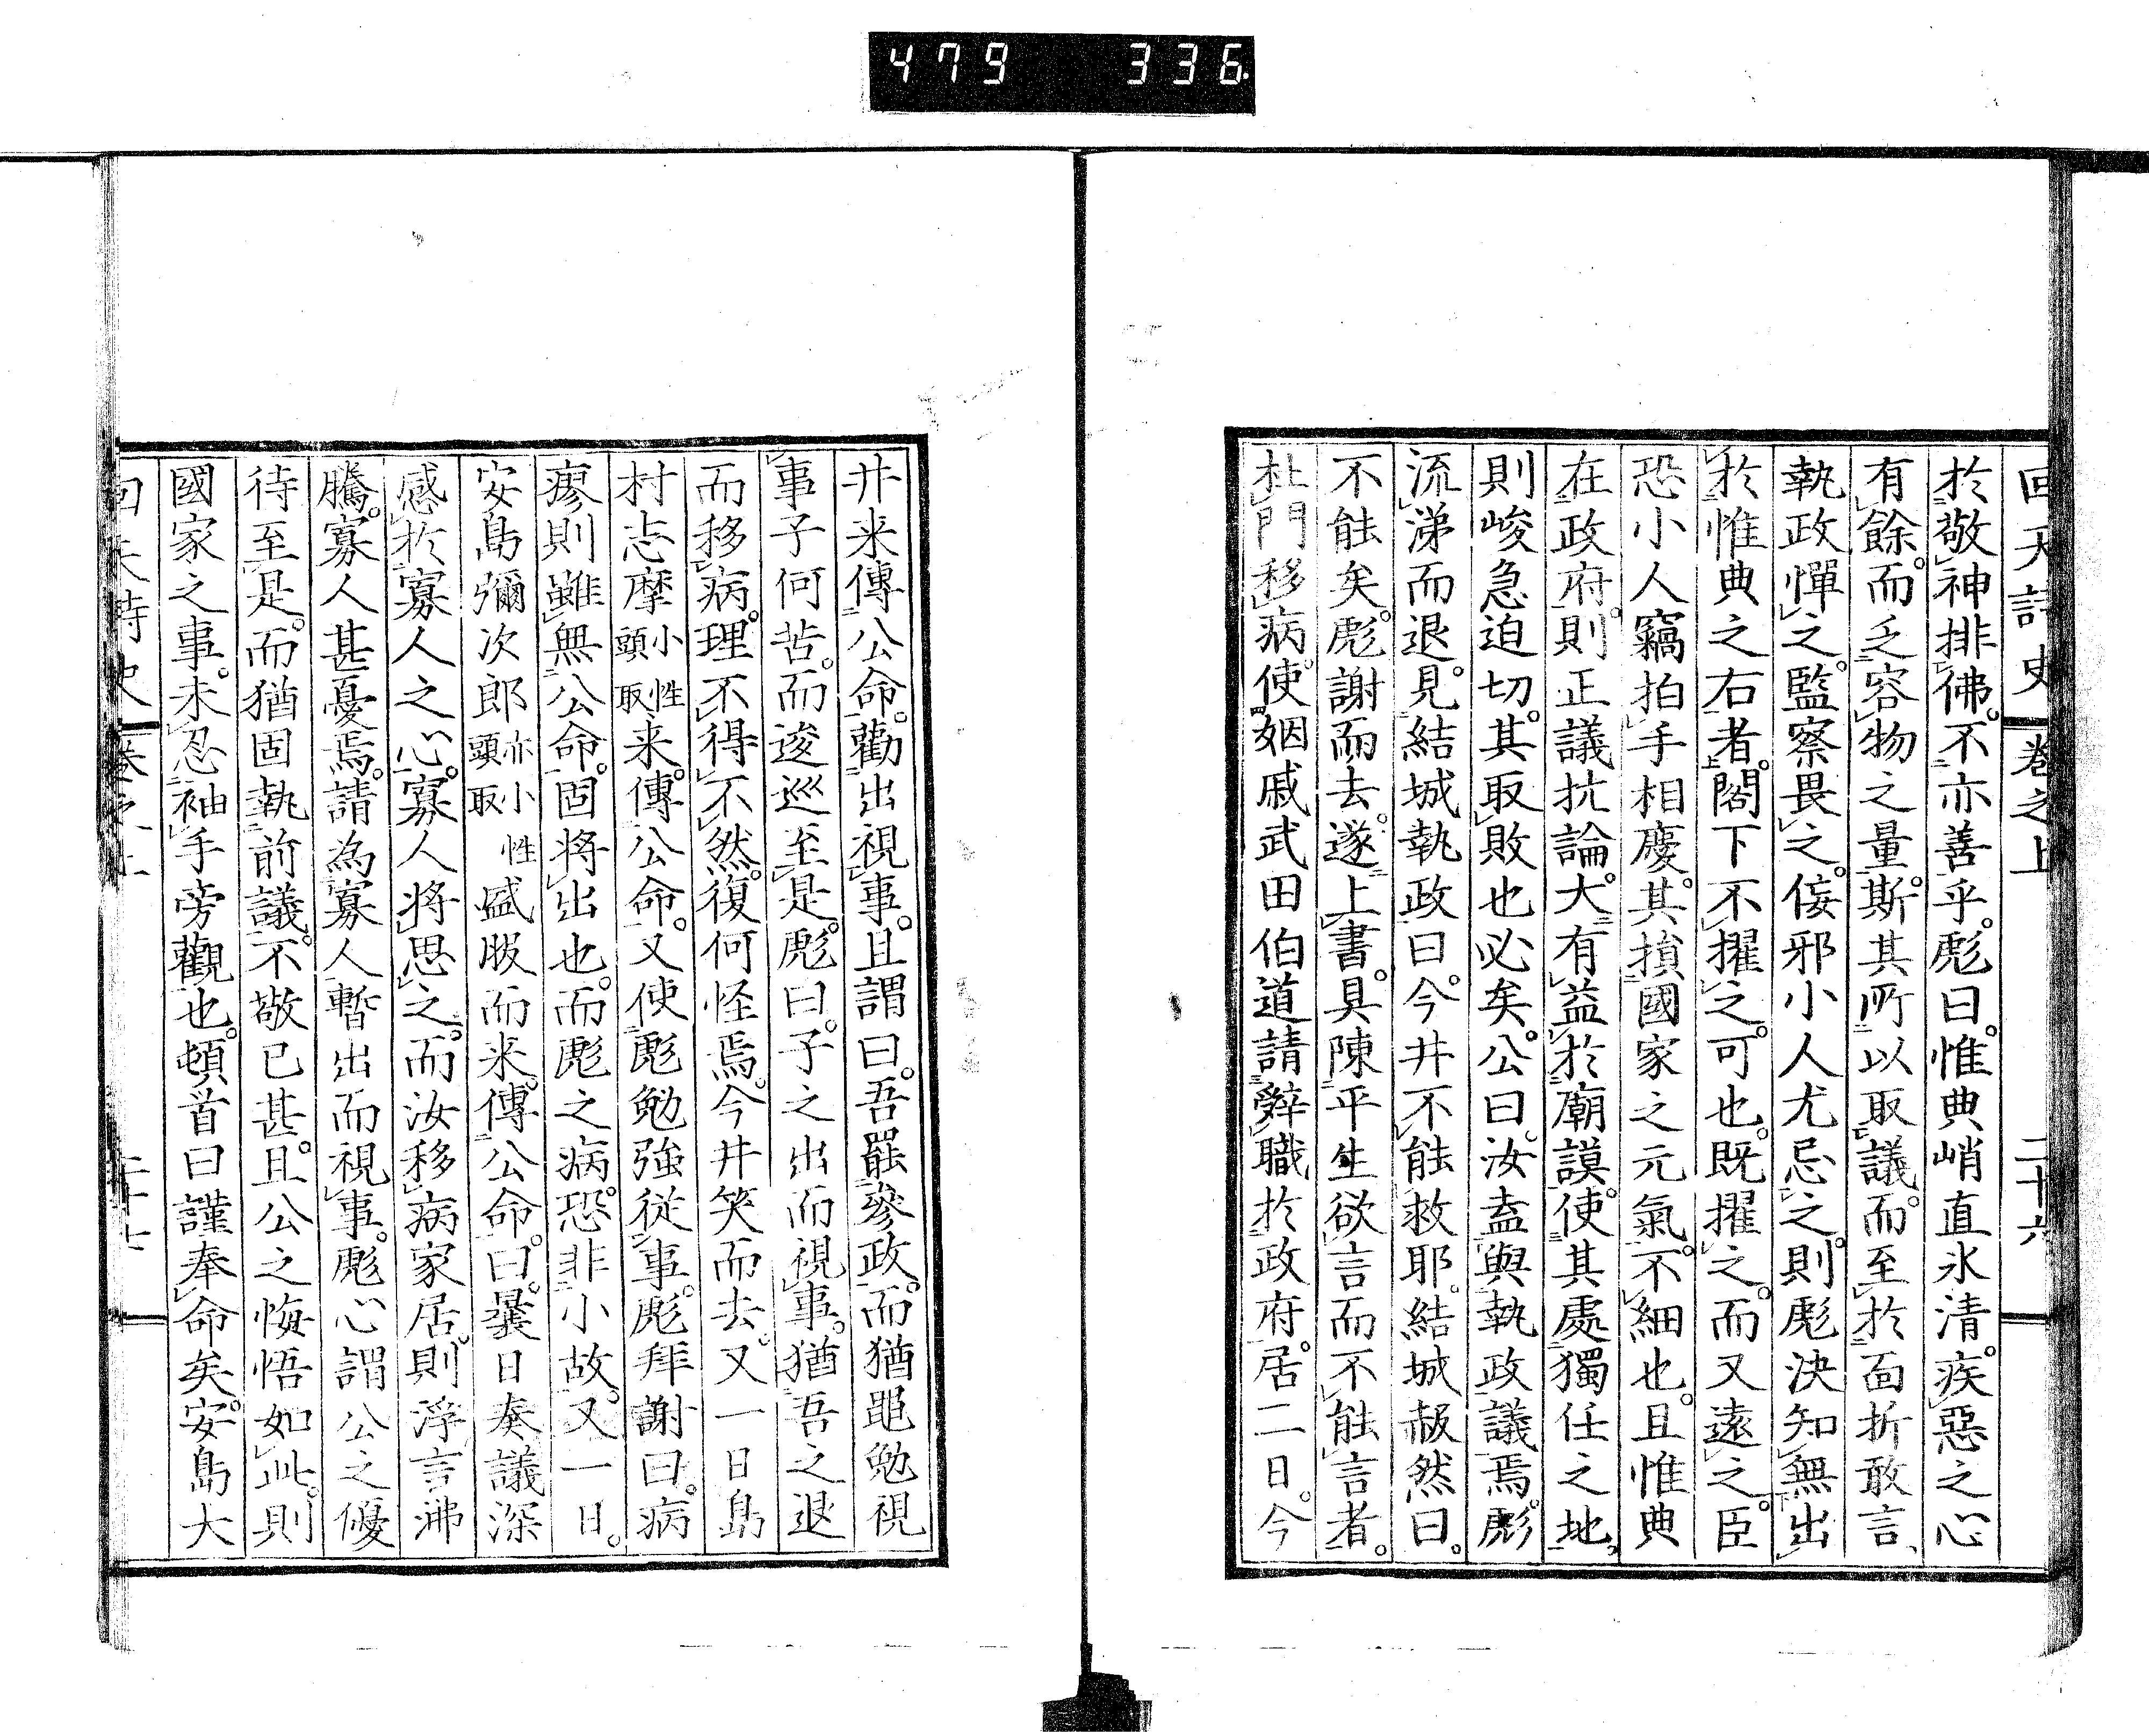 479 336
回天詩史 卷之上 二十六
於敬神排佛。不亦善乎。彪曰。惟典峭直氷清。疾惡之心
有餘。而乏容物之量。斯其所以取議。而至於面折敢言、
執政憚之。監察畏之。佞邪小人尤忌之。則彪決知無出
於惟典之右者。閤下不擢之。可也。既擢之。而又遠之。臣
恐小人竊拍手相慶。其損國家之元氣。不細也。且惟典
在政府。則正議抗論。大有益於廟謨。使其處獨任之地。
則峻急迫切。其取敗也必矣。公曰。汝盍與執政議焉。彪
流涕而退。見結城執政曰。今井不能救耶。結城赧然曰。
不能矣。彪謝而去。遂上書。具陳平生欲言而不能言者。
杜門移病。使姻戚武田伯道請辭職於政府。居二日。今
井来傳公命。勸出視事。且謂曰。吾罷參政。而猶黽勉視
事子何苦。而逡巡至是。彪曰。子之出而視事。猶吾之退
而移病。理不得不然。復何怪焉。今井笑而去。又一日島
村志摩小性頭取来。傳公命。又使彪勉強従事。彪拜謝曰。病
瘳則雖無公命。固將出也。而彪之病。恐非小故。又一日。
安島彌次郎亦小性頭取盛服而来。傳公命曰。曩日奏議深
感於寡人之心。寡人將思之。而汝移病家居。則浮言沸
騰。寡人甚憂焉。請為寡人暫出而視事。彪心謂公之優
待至是。而猶固執前議。不敬已甚。且公之悔悟如此。則
國家之事。未忍袖手旁觀也。頓首曰謹奉命矣。安島大